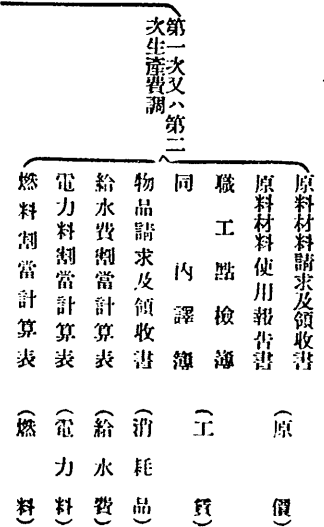 第一次又ハ第二
次生產費調
原料材料請求及領收書
原料材料使用報告書
(原價)
職工點檢簿
同內譯簿
(工賃)
物品請求及領收書(消耗品)
給水費割當計算表(給水費)
電力料割當計算表(電力料)
燃料割當計算表(燃料)